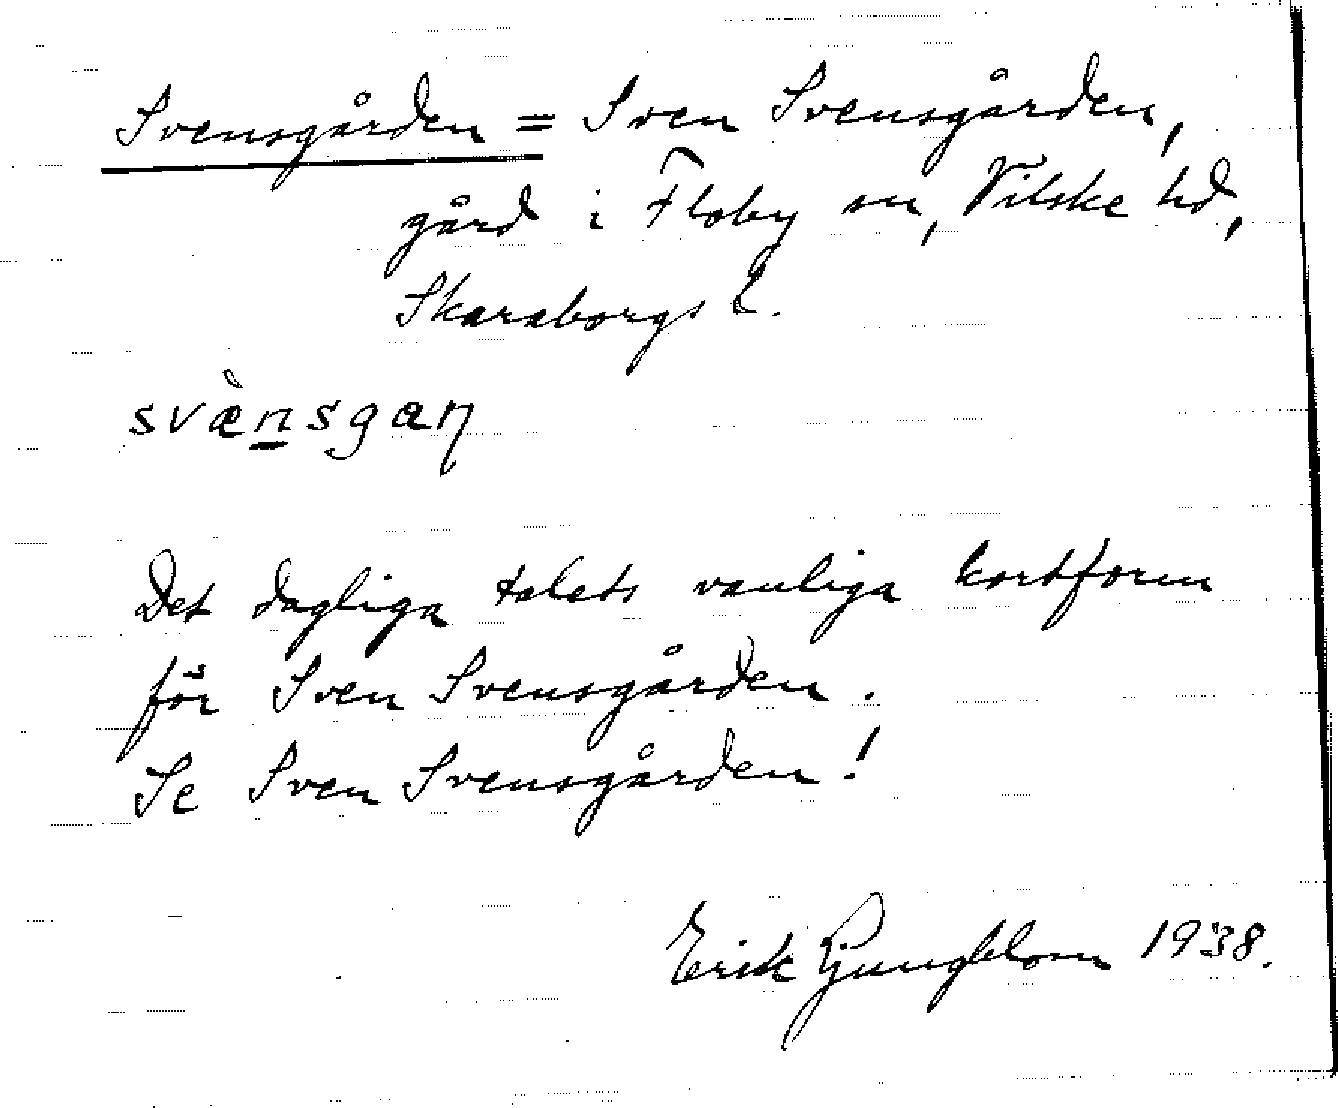 Svensgården = Sven Svensgården,
gård i Floby sn, Vilske hd,
Skaraborgs l.
svæ̀n̲sgaɳ
Det dagliga talets vanliga kortform
för Sven Svensgården.
Se Sven Svensgården!
Erik Ljungblom 1938.